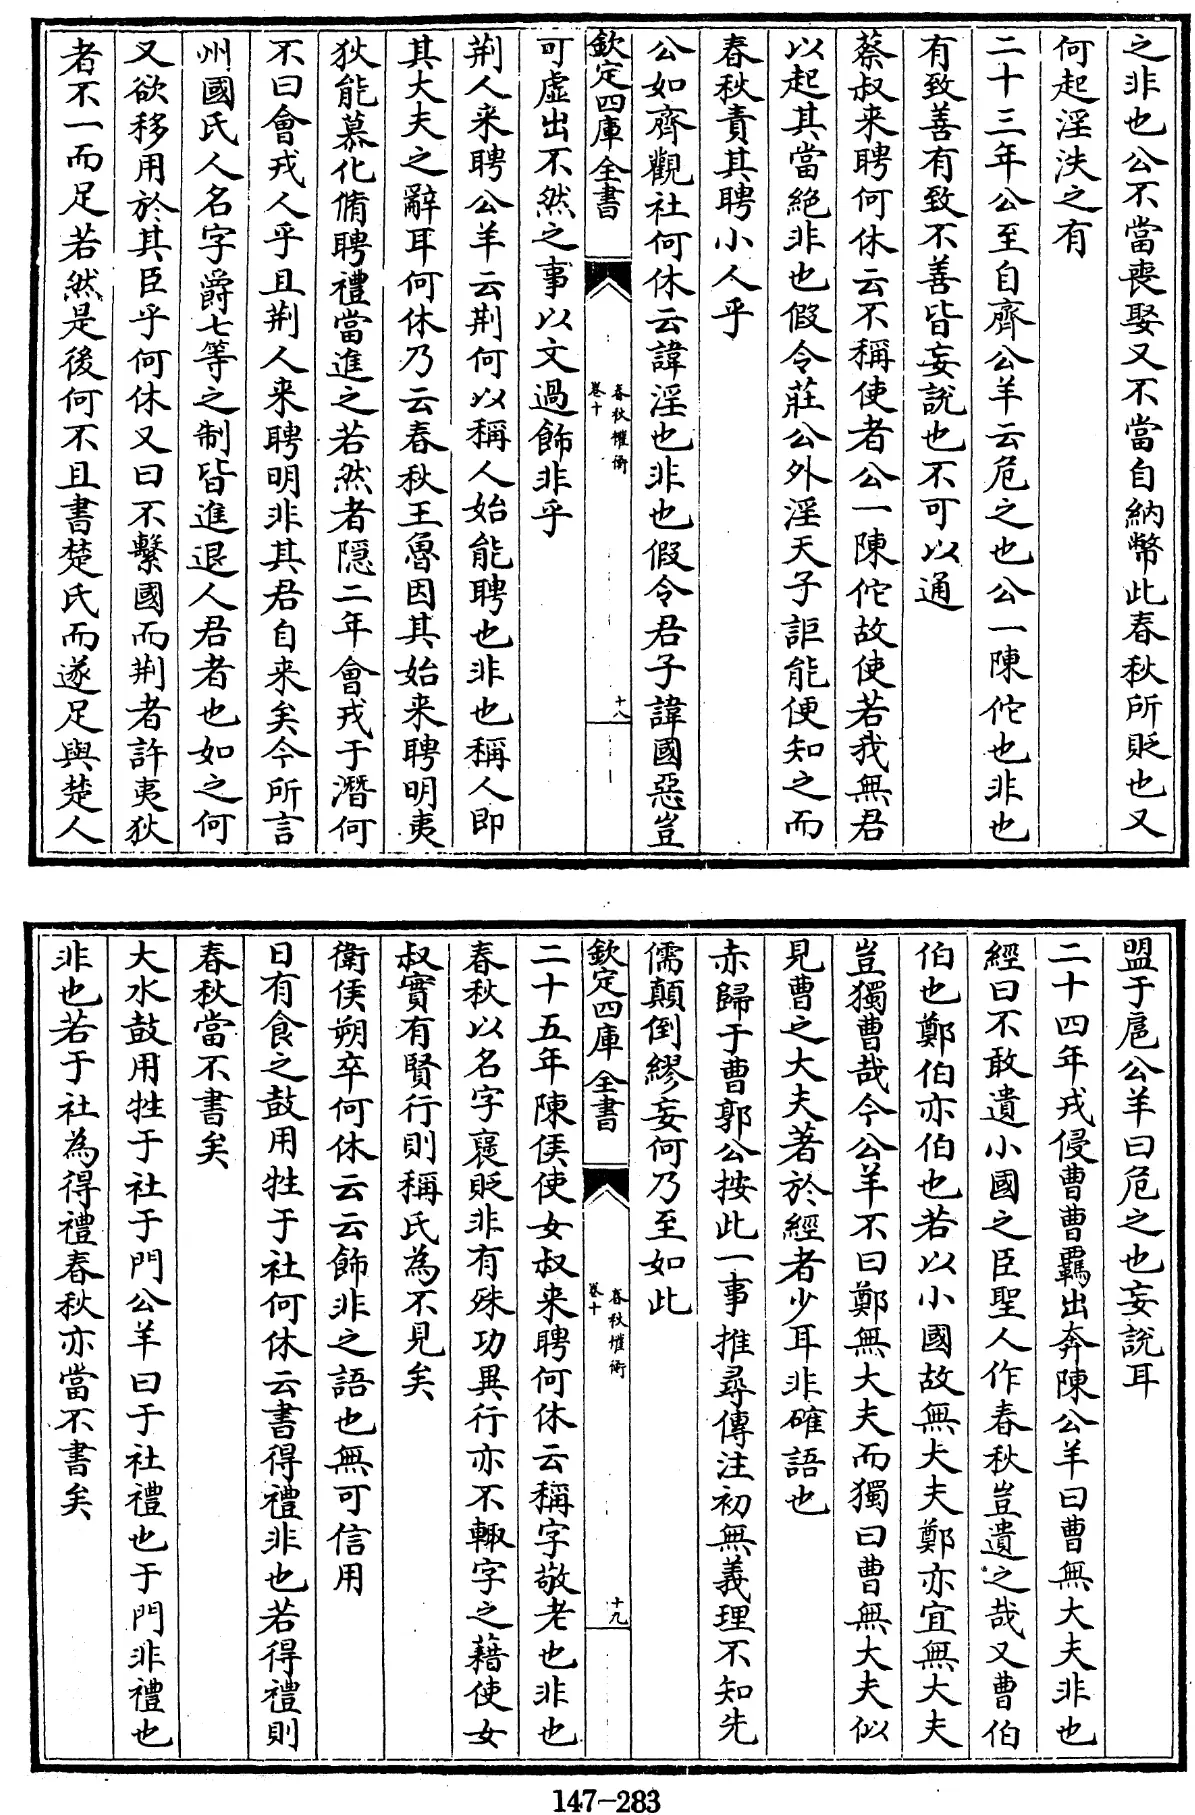 之非也公不當喪娶又不當自納幣此春秋所貶也又
何起淫泆之有
二十三年公至自齊公羊云危之也公一陳佗也非也
有致善有致不善皆妄說也不可以通
蔡叔来聘何休云不稱使者公一陳佗故使若我無君
以起其當絶非也假令莊公外淫天子詎能便知之而
春秋責其聘小人乎
公如齊觀社何休云諱淫也非也假令君子諱國惡豈
欽定四庫全書
春秋權衡
卷十
十八
可虚出不然之事以文過飾非乎
荆人来聘公羊云荆何以稱人始能聘也非也稱人即
其大夫之辭耳何休乃云春秋王魯因其始来聘明夷
狄能慕化脩聘禮當進之若然者隠二年會戎于潛何
不曰會戎人乎且荆人来聘明非其君自来矣今所言
州國氏人名字爵七等之制皆進退人君者也如之何
又欲移用於其臣乎何休又曰不繫國而荆者許夷狄
者不一而足若然是後何不且書楚氏而遂足與楚人
盟于扈公羊曰危之也妄說耳
二十四年戎侵曹曹羈出奔陳公羊曰曹無大夫非也
經曰不敢遺小國之臣聖人作春秋豈遺之哉又曹伯
伯也鄭伯亦伯也若以小國故無大夫鄭亦宜無大夫
豈獨曹哉今公羊不曰鄭無大夫而獨曰曹無大夫似
見曹之大夫著於經者少耳非確語也
赤歸于曹郭公按此一事推尋傳注初無義理不知先
儒顛倒繆妄何乃至如此
欽定四庫全書
春秋權衡
卷十
十九
二十五年陳侯使女叔来聘何休云稱字敬老也非也
春秋以名字襃貶非有殊功異行亦不輙字之藉使女
叔實有賢行則稱氏為不見矣
衛侯朔卒何休云云飾非之語也無可信用
日有食之鼓用牲于社何休云書得禮非也若得禮則
春秋當不書矣
大水鼓用牲于社于門公羊曰于社禮也于門非禮也
非也若于社為得禮春秋亦當不書矣
147-283